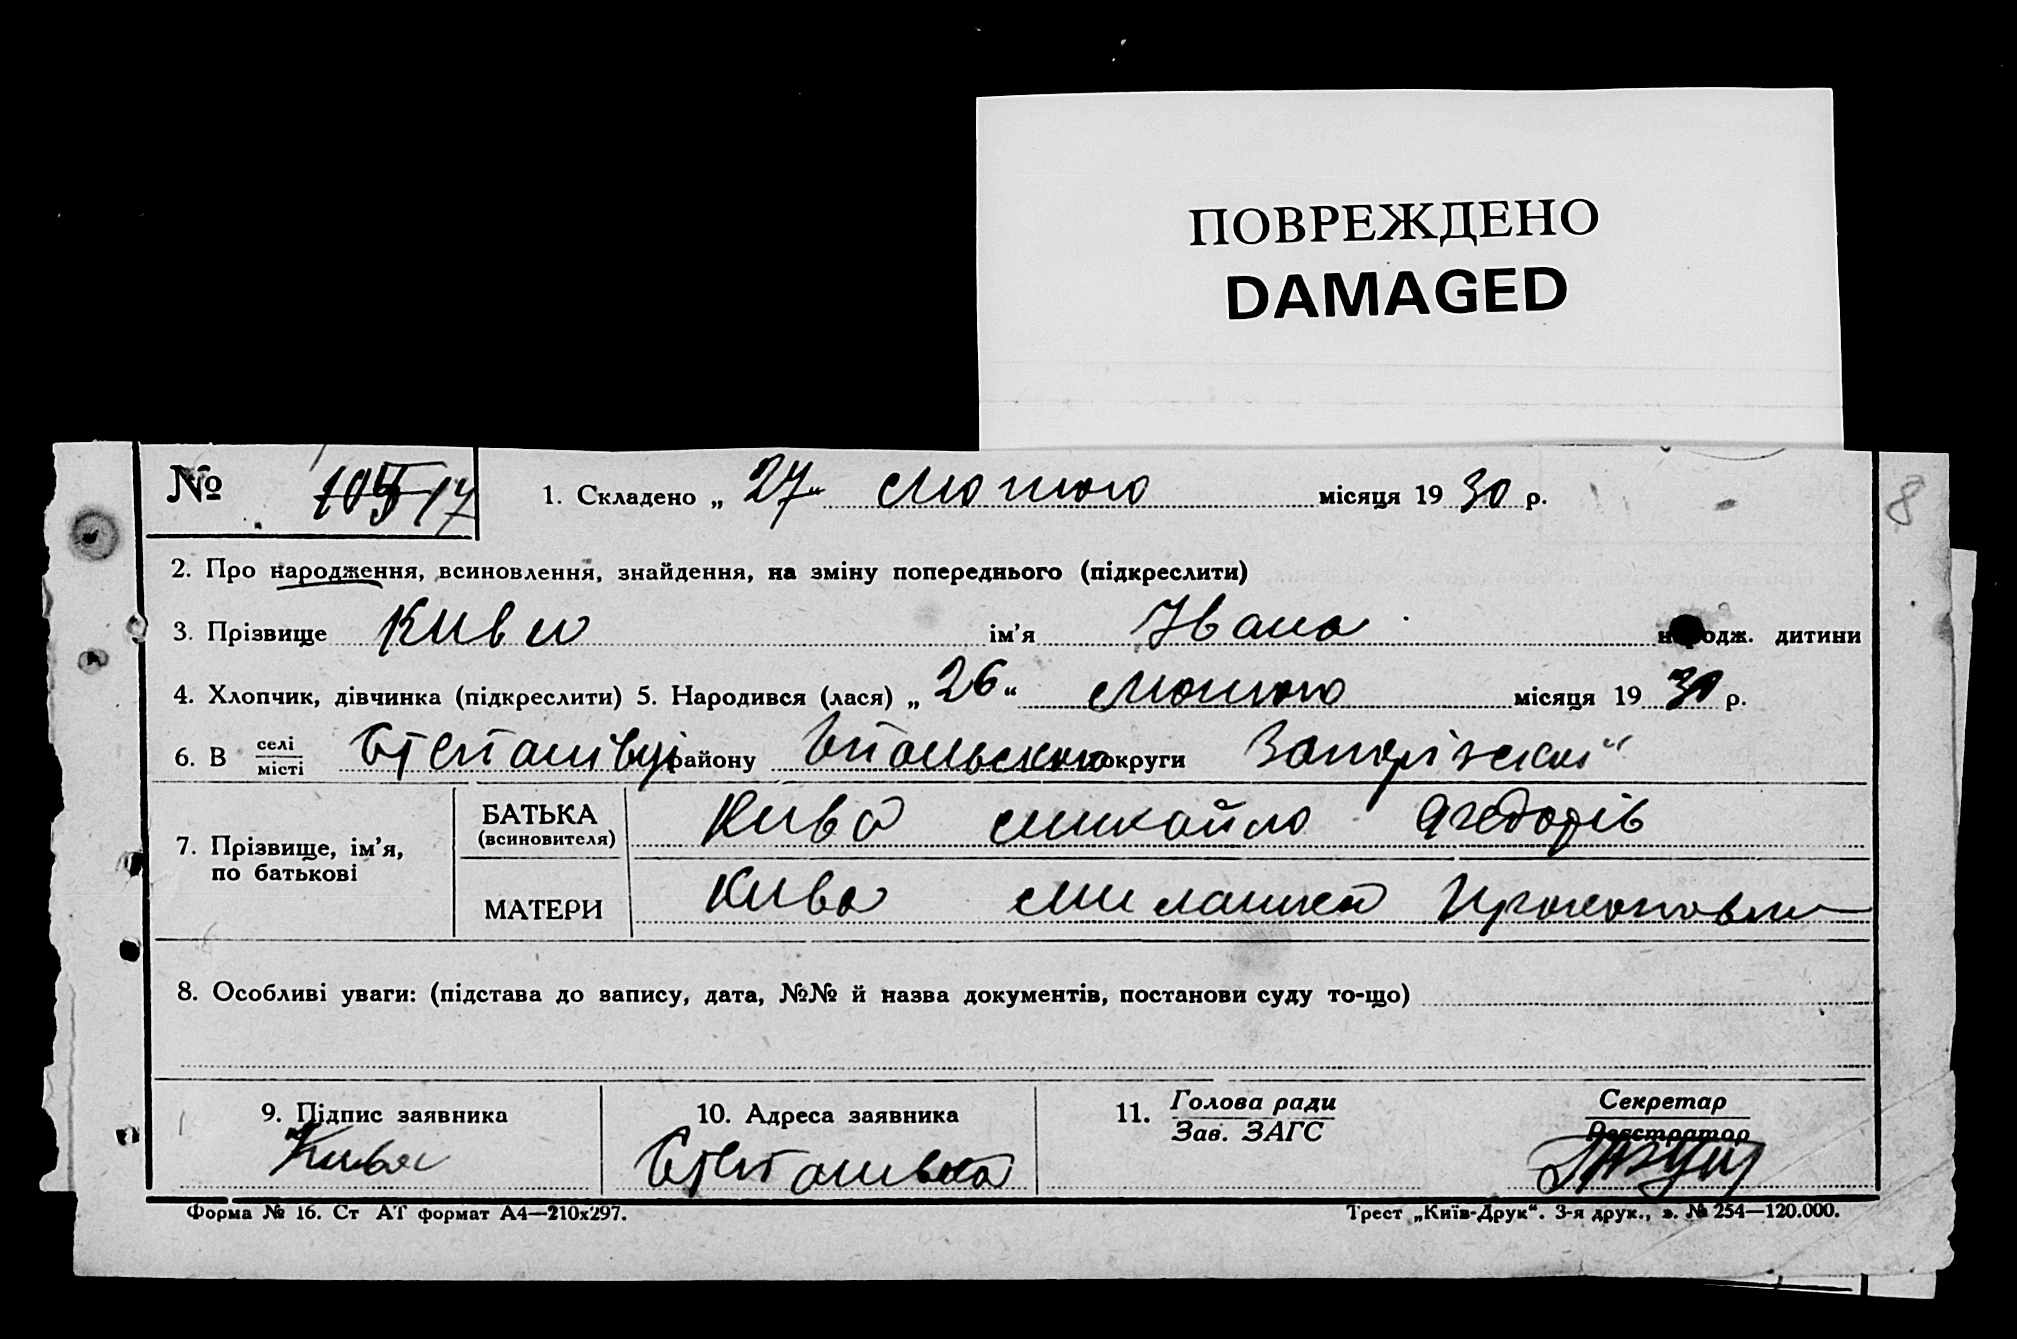 ПОВРЕЖДЕНО
DAMAGED
8
№ 17 1. Складено „27“ Лютого місяця 1930 р.
2. Про народження, всиновлення, знайдення, на зміну попереднього (підкреслити)
3. Прізвище Киви ім’я Івана народж. дитини
4. Хлопчик, дівчинка (підкреслити) 5. Народився (лася) „26“ Лютого місяця 1930 р.
6. В селі місті Степанівці району округи Запорізької
7. Прізвище, ім’я, по батькові
БАТЬКА (всиновителя) Кива Михайло Федорів
МАТЕРИ Кива Миланка Прокоповна
8. Особливі уваги: (підстава до запису, дата, №№ й назва документів, постанови суду то-що)
9. Підпис заявника 10. Адреса заявника 11. Голова ради Зав. ЗАГС Секретар Реєстратор
Кива Степанивка
Форма № 16. Ст АТ формат А4—210х297. Трест „Київ-Друк“. 3-я друк., з. № 254—120.000.